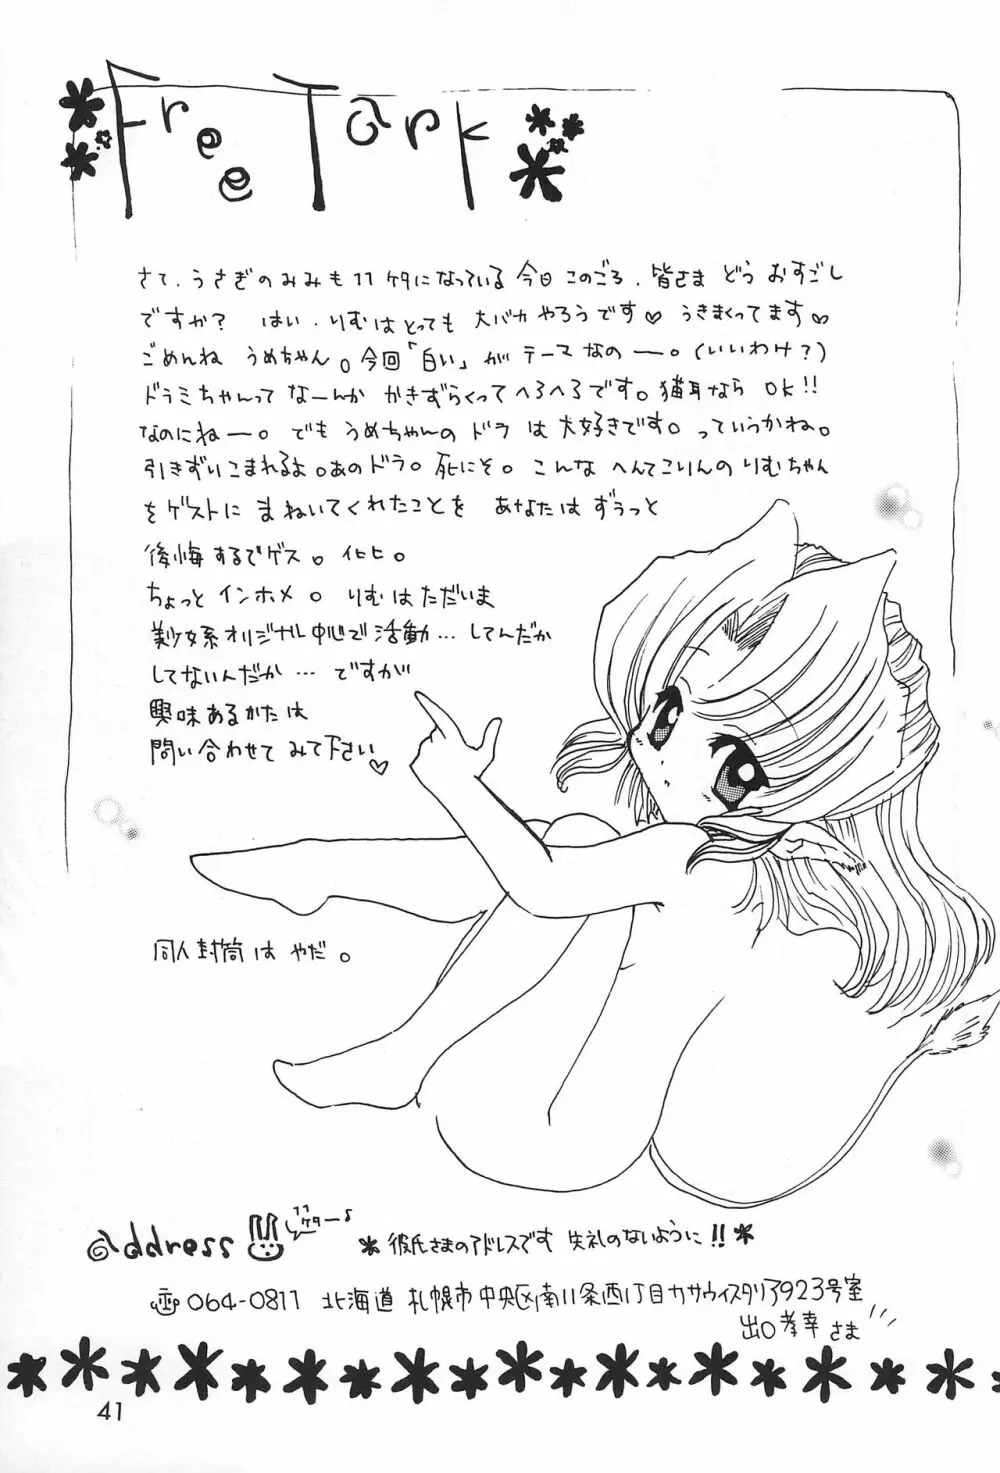 Free Tark
さて、うさぎのみみも11ケタになっている今日このごろ、皆さま どう おすごし
ですか? はい、りむはとっても 大バカ やろうです♡ うきまくってます♡
ごめんね うめちゃん。今回「白い」がテーマなのー。(いいわけ?)
ドラミちゃんって なーんか かきずらくってへろへろです。猫耳なら OK!!
なのにねー。でも うめちゃんの ドラ は大好きです。っていうかね。
引きずいこまれるよ。あのドラ。死にそ。こんな へんてこりんの りむちゃん
をゲストに まねいてくれたことを あなたは ずぅっと
後悔するでゲス。イヒヒ。
ちょっと インホメ。 りむは ただいま
美少女系オリジナル中心で活動…してんだか
してないんだか…ですが
興味あるかたは
問い合わせて みて下さい♡
同人封筒は やだ。
@ddress
11ケターっ
*彼氏さまのアドレスです 失礼のないように!!*
〠064-0811 北海道 札幌市中央区南11条西1丁目カサウィスタリア923号室
出口孝幸さま
41